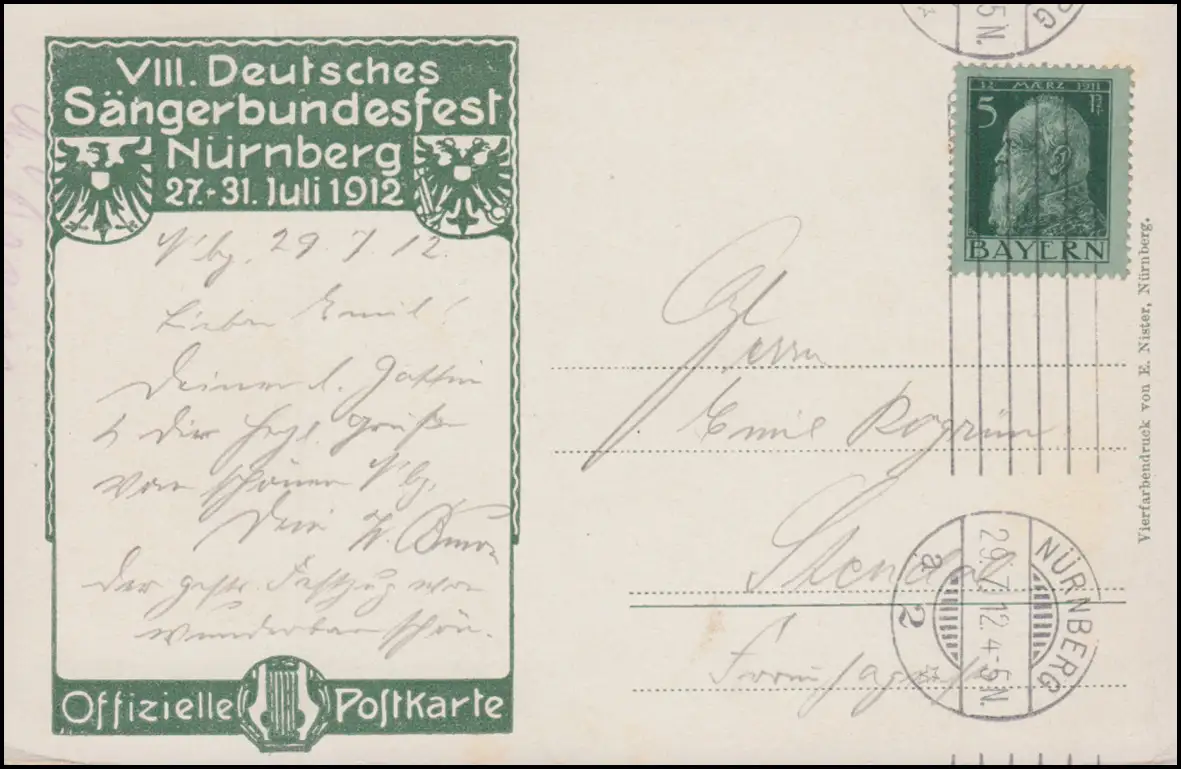 VIII. Deutsches
Sängerbundesfest
Nürnberg
27.-31. Juli 1912
N'bg. 29 7 12.
Lieber Emil!
Deiner l. Gattin
& Dir herzl. Grüße
vom schönen N'bg.
Dein H.
Der gestr. Festzug war
wunderbar schön.
Offizielle Postkarte
5 N.
RG
12. MÆRZ 1911
5 Pf
BAYERN
Herrn
Emil Rogrün
Stendal
NÜRNBERG
29.7.12.4-5N.
a 2
Vierfarbendruck von E. Nister, Nürnberg.